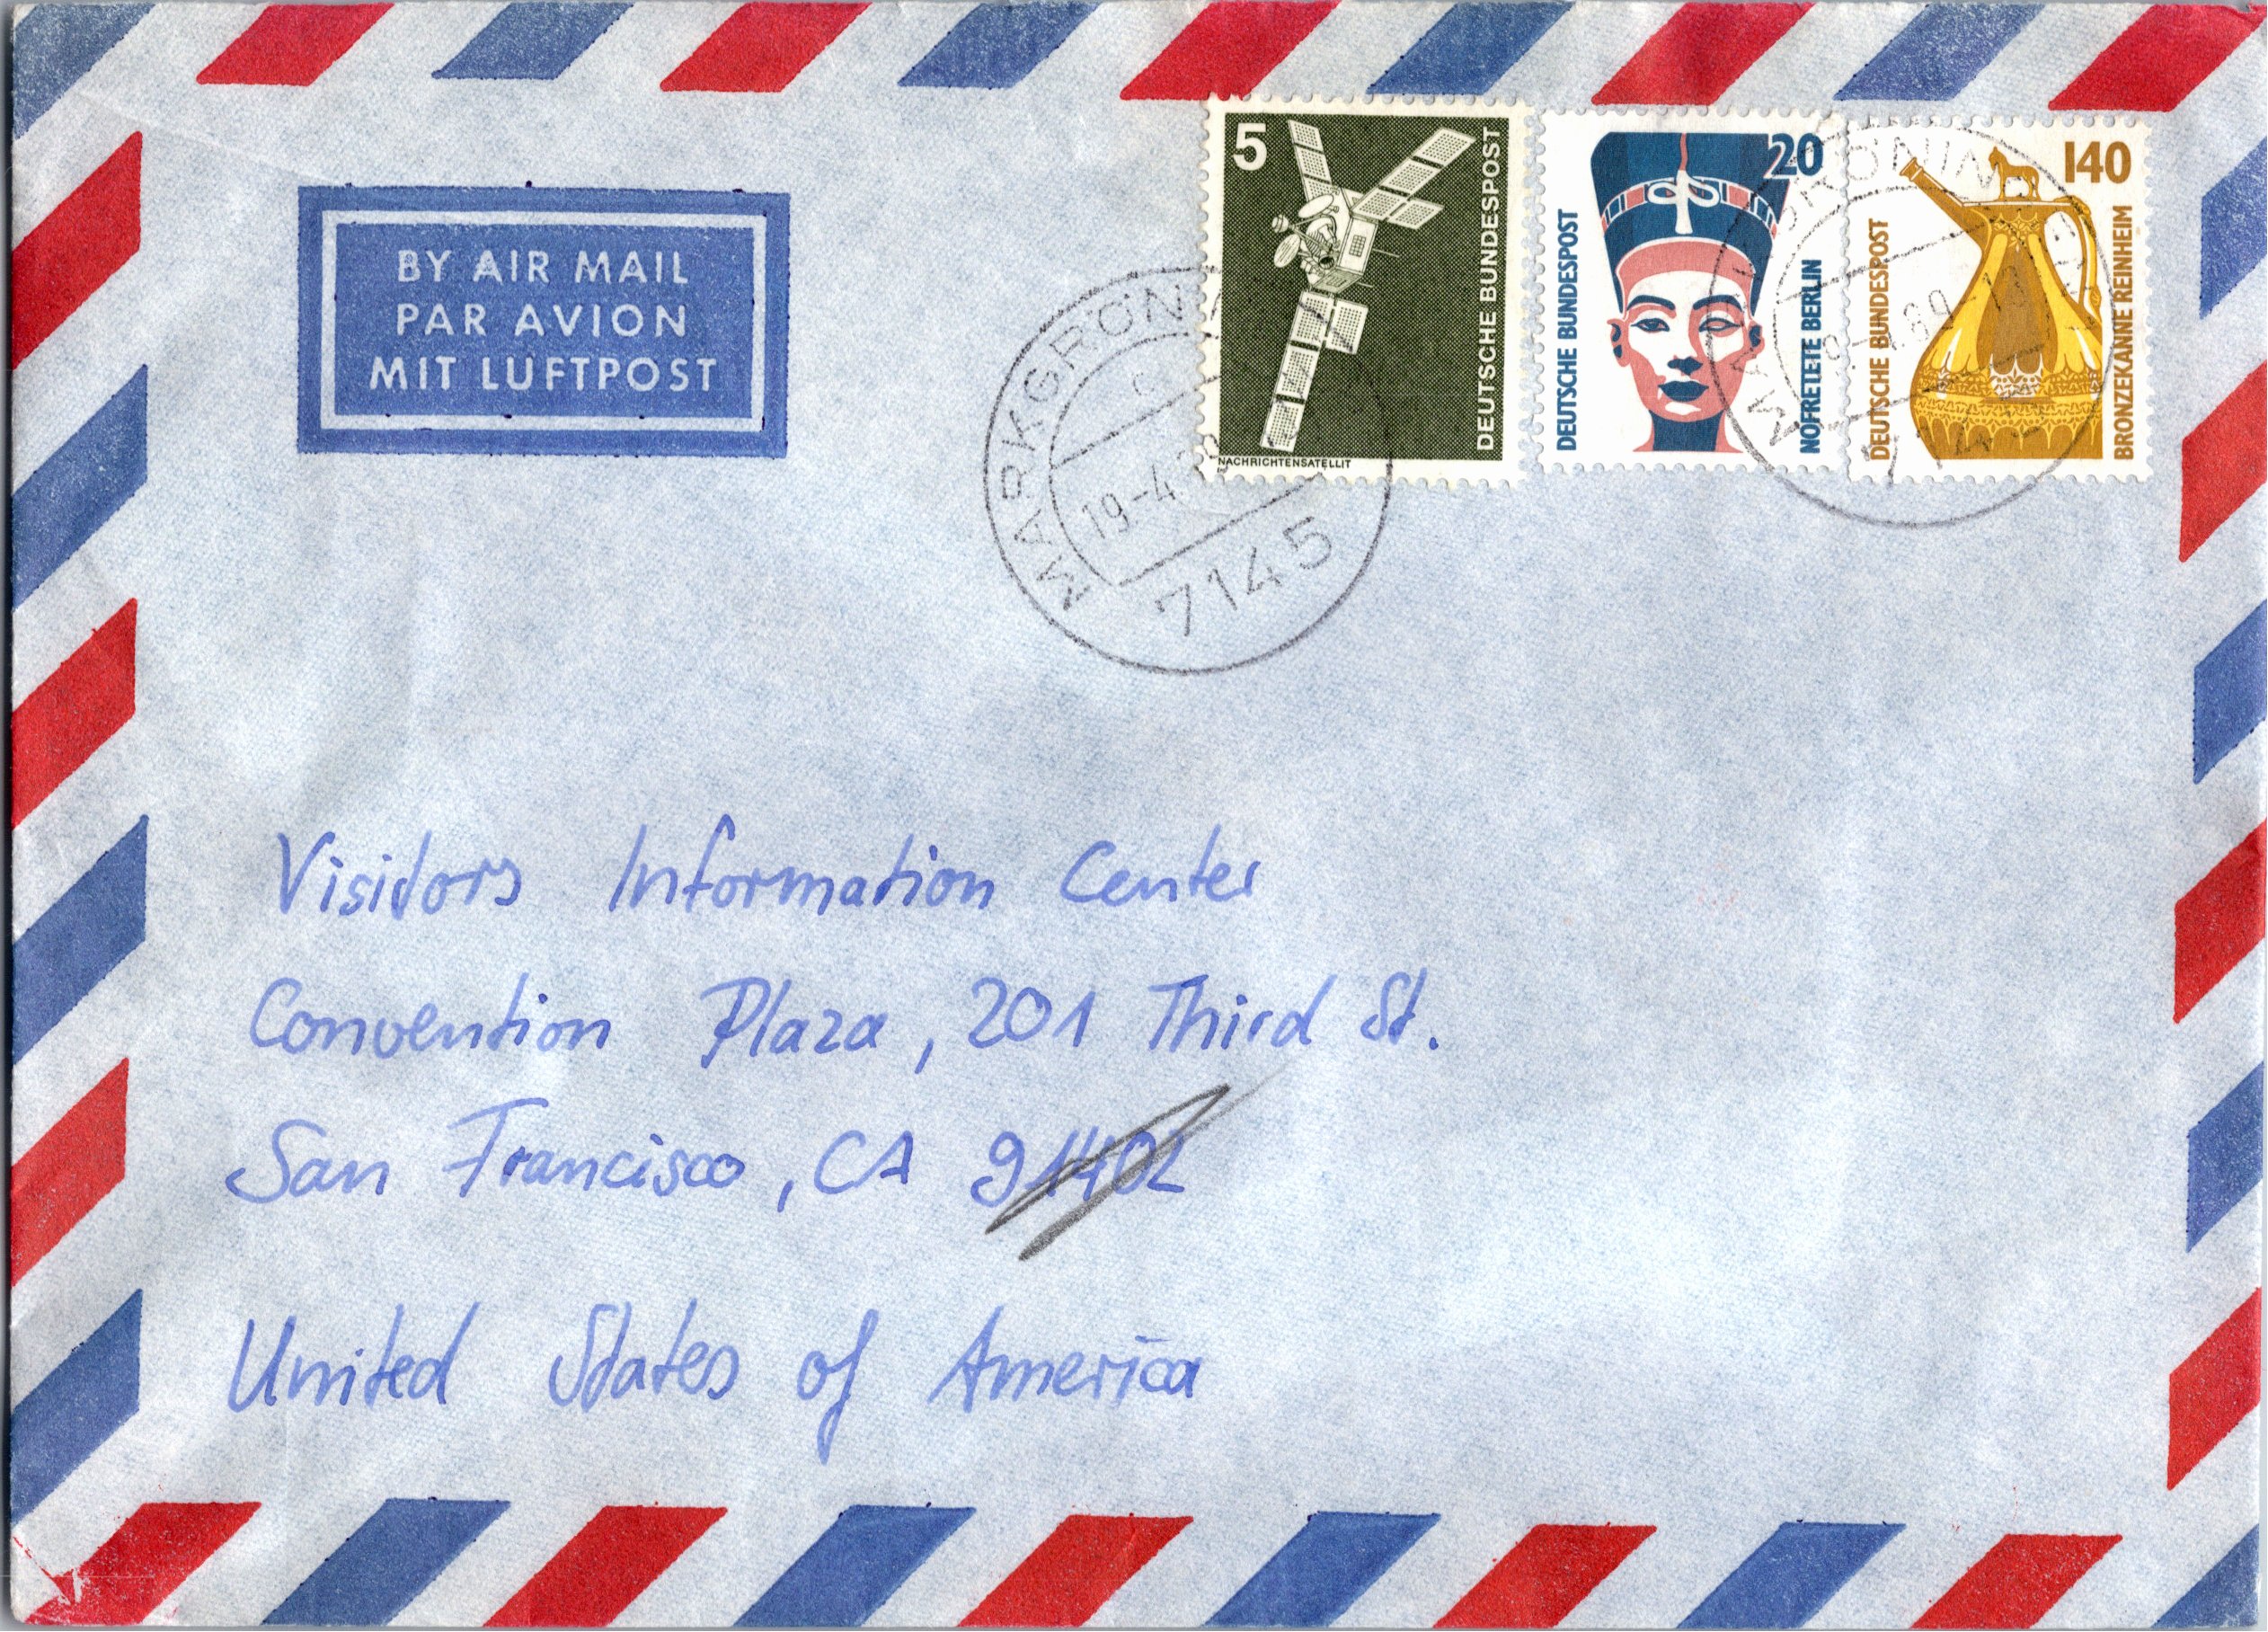 BY AIR MAIL
PAR AVION
MIT LUFTPOST
5
DEUTSCHE BUNDESPOST
NACHRICHTENSATELLIT
20
DEUTSCHE BUNDESPOST
NOFRETETE BERLIN
140
DEUTSCHE BUNDESPOST
BRONZEKANNE REINHEIM
MARKGRÖNIN
19-4
7145
Visitors Information Center
Convention Plaza, 201 Third St.
San Francisco, CA 91402
United States of America